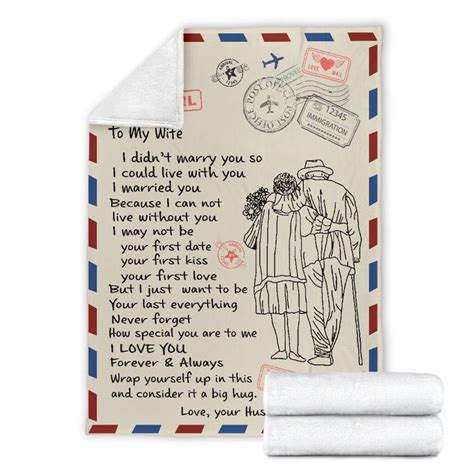 LOVE MAIL
POST OFFICE
POST OFFICE
12345
IMMIGRATION
To My Wife
I didn't marry you so
I could live with you
I married you
Because I can not
live without you
I may not be
your first date
your first kiss
your first love
But I just want to be
Your last everything
Never forget
How special you are to me
I LOVE YOU
Forever & Always
Wrap yourself up in this
and consider it a big hug.
Love, your Hus